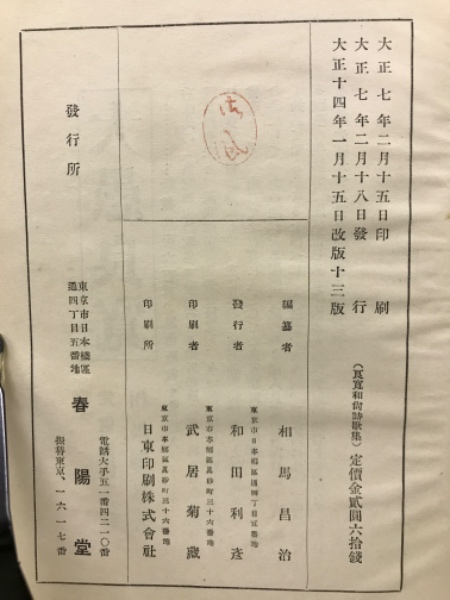 大正七年二月十五日印刷
大正七年二月十八日發行
大正十四年一月十五日改版十三版
(良寬和尙詩歌集) 定價金貳圓六拾錢
編纂者 相馬昌治
東京市日本橋區通四丁目五番地
發行者 和田利彥
東京市本鄕區眞砂町三十六番地
印刷者 武居菊藏
東京市本鄕區眞砂町三十六番地
印刷所 日東印刷株式會社
發行所
東京市日本橋區
通四丁目五番地
春陽堂
電話大手五一番四二一〇番
振替東京、一六一七番